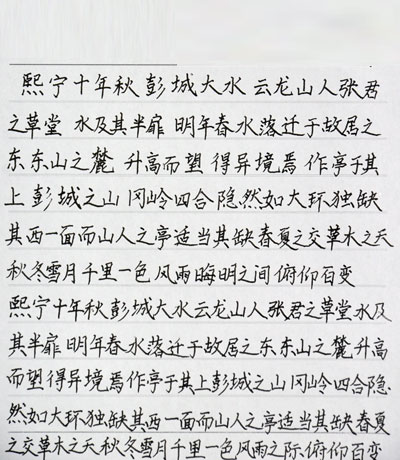 熙宁十年秋 彭城大水 云龙山人张君
之草堂 水及其半扉 明年春 水落迁于故居之
东东山之麓 升高而望 得异境焉 作亭于其
上 彭城之山 冈岭四合 隐然如大环独缺
其西一面而山人之亭适当其缺春夏之交草木之天
秋冬雪月千里一色 风雨晦明之间 俯仰百变
熙宁十年秋彭城大水云龙山人张君之草堂水及
其半扉 明年春水落迁于故居之东东山之麓升高
而望得异境焉作亭于其上彭城之山冈岭四合隐
然如大环独缺其西一面而山人之亭适当其缺春夏
之交草木之天秋冬雪月千里一色风雨之际俯仰百变